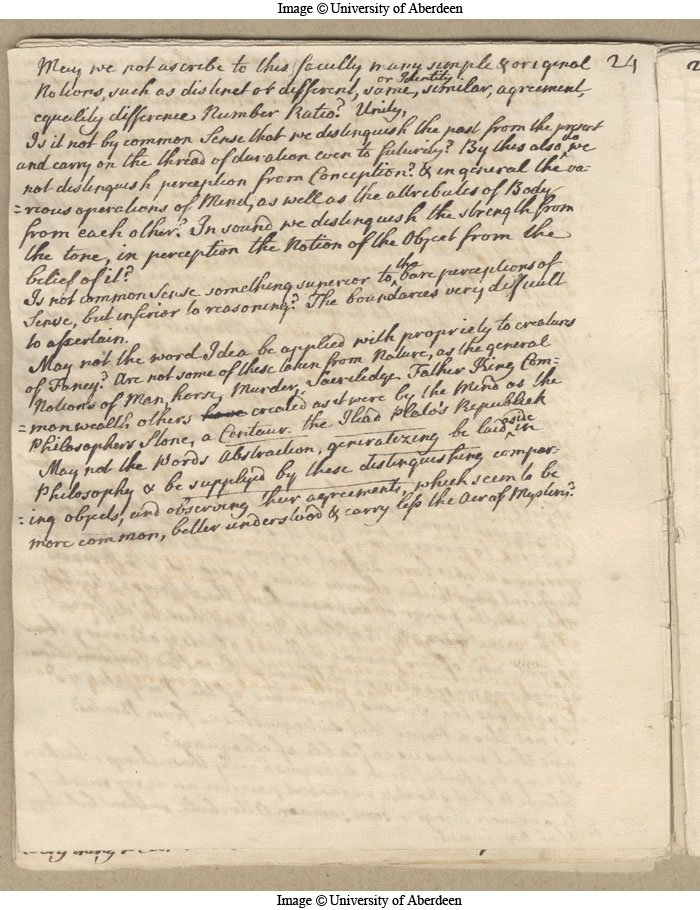 Image © University of Aberdeen
24
May we not ascribe to this faculty many simple & original
Notions, such as distinct or different, same, or Identity, similar, agreement,
equality difference Number Ratio? Unity,
Is it not by common Sense that we distinguish the past from the present
and carry on the thread of duration even to futurity? By this also do we
not distinguish perception from Conception? & in general the va-
=rious operations of Mind, as well as the attributes of Body
from each other? In sound we distinguish the strength from
the tone, in perception the Notion of the Object from the
belief of it?
Is not common Sense something superior to the bare perceptions of
Sense, but inferior to reasoning? The boundaries very difficult
to assertain.
May not the word Idea be applied with propriety to creatures
of Fancy? Are not some of these taken from Nature, as the general
Notions of Man, horse, Murder, Sacriledge Father King Com=
=monwealth others have created as it were by the Mind as the
Philosophers Stone, a Centaur. the Iliad Plato's Republick
May not the Words Abstraction, generalizing be laid aside in
Philosophy & be supplyed by these distinguishing compar-
=ing objects, and observing their agreements, which seem to be
more common, better understood & carry less the Air of Mystery?
Image © University of Aberdeen